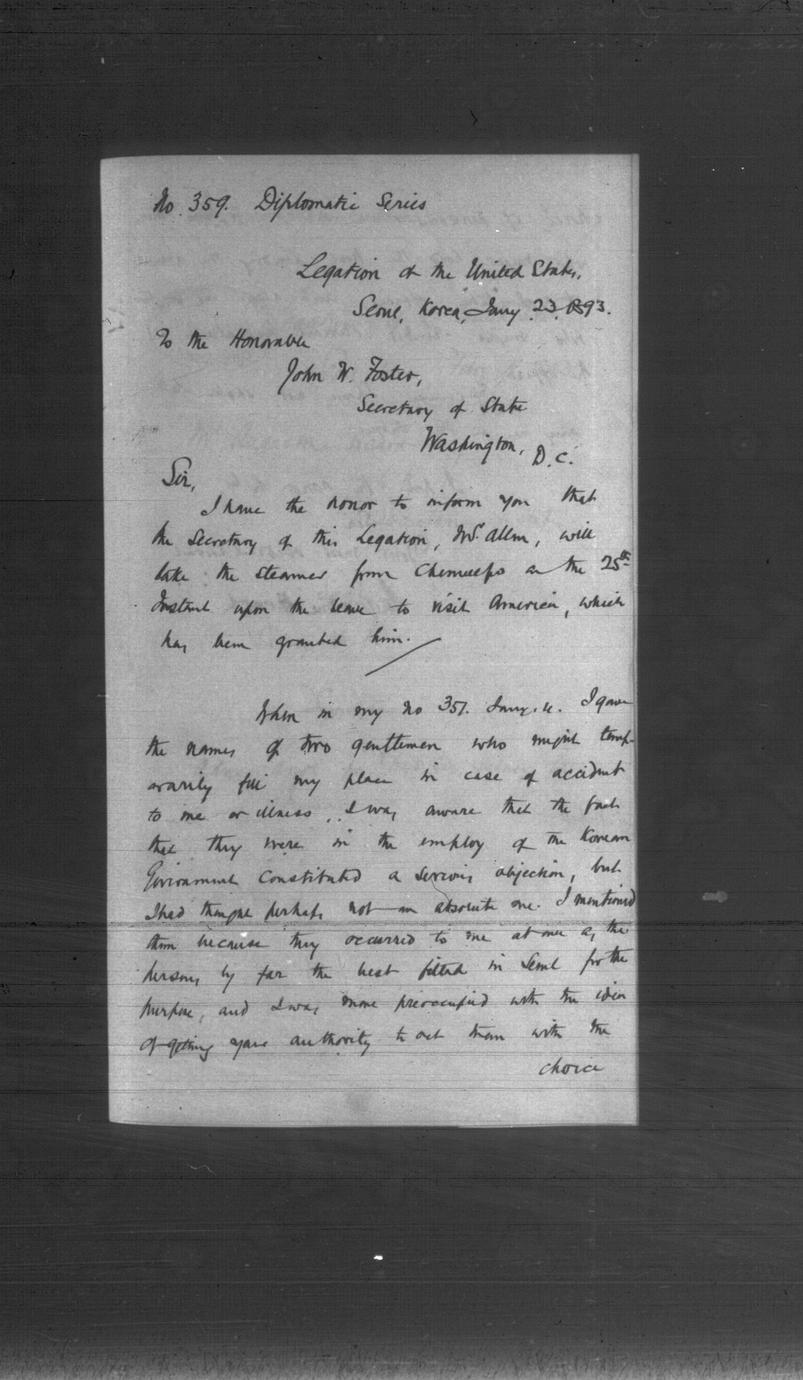 No. 359. Diplomatic Series
Legation of the United States,
Seoul, Korea, Jany 23, 1893.
To the Honorable
John W. Foster,
Secretary of State
Washington, D.C.
Sir,
I have the honor to inform you that
the Secretary of this Legation, Dr. Allen, will
take the steamer from Chemulpo on the 25th
Instant upon the leave to visit America, which
has been granted him.
When in my No 351. Jany. 4. I gave
the names of two gentlemen who might temp-
orarily fill my place in case of accident
to me or illness, I was aware that the fact
that they were in the employ of the Korean
Government constituted a serious objection, but
I had thought perhaps not an absolute one. I mentioned
them because they occurred to me at once as the
persons by far the best fitted in Seoul for the
purpose, and I was more preoccupied with the idea
of getting your authority to act than with the
choice